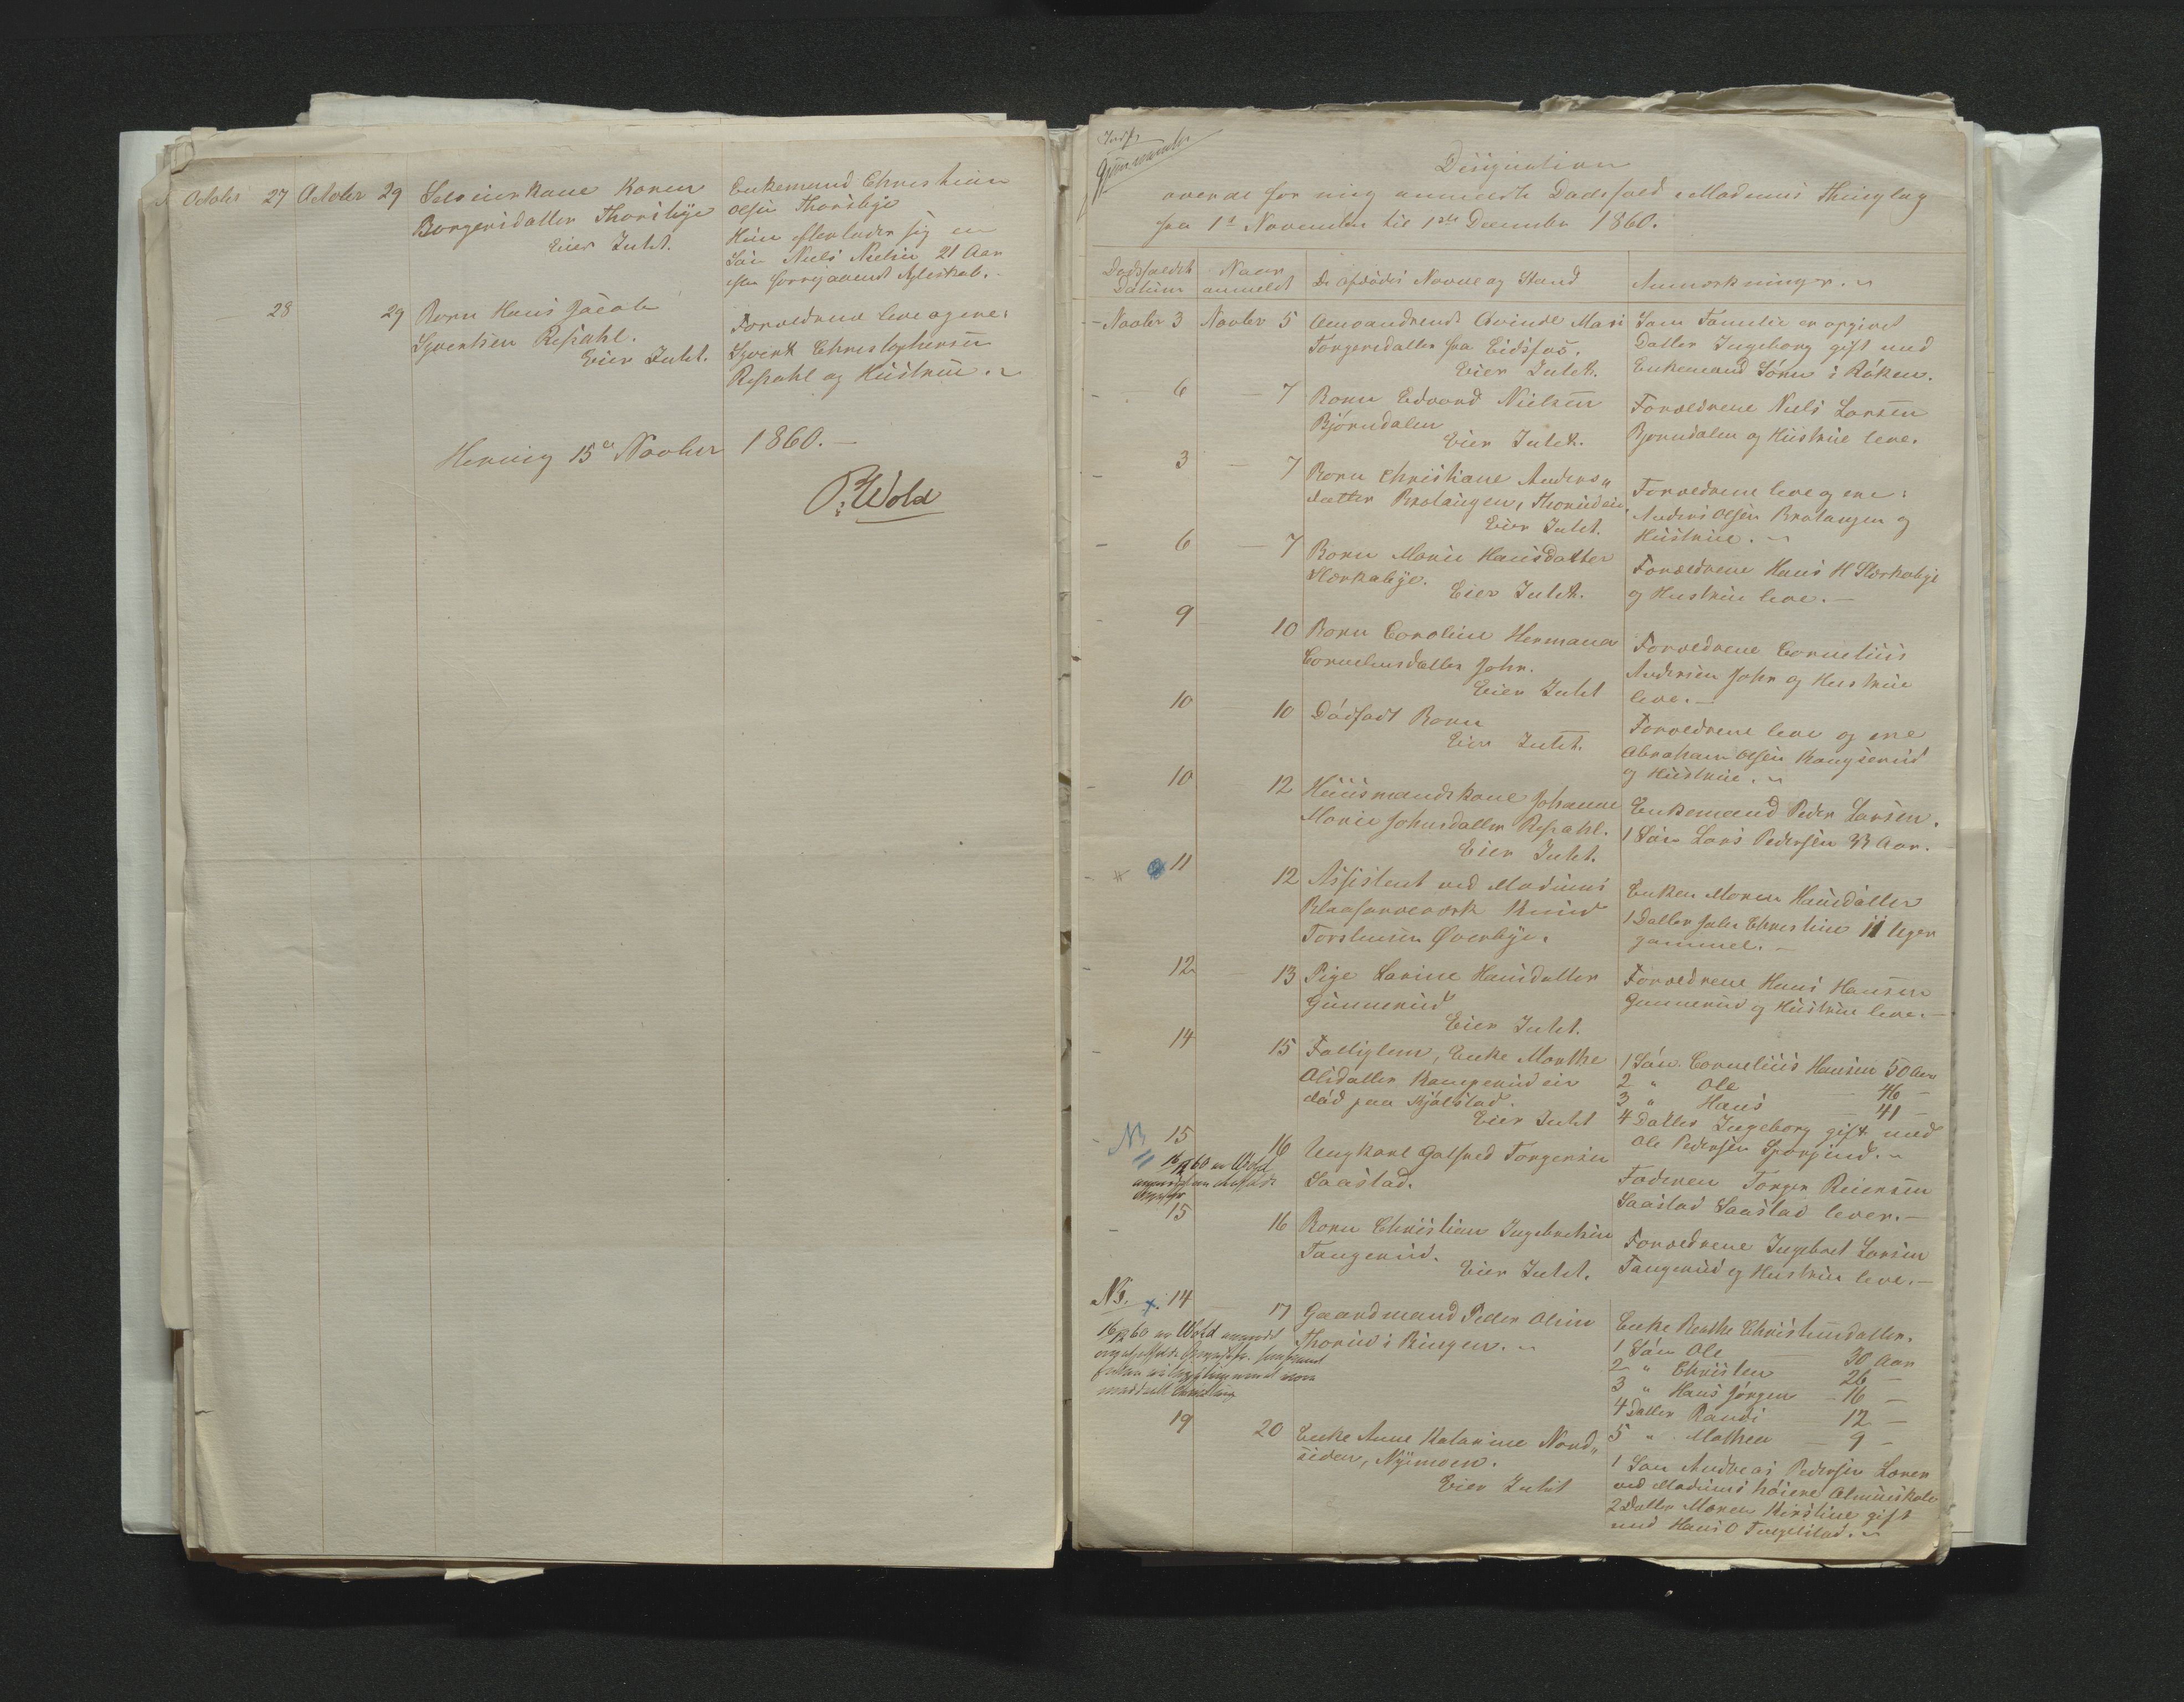 October 27 October 29 Selveierkone Karen
Borgersdatter Thorsbye
Eier Intet.
Enkemand Christian
Olsen Thorsbye
Hun efterlader sig en
Søn Niels Nielsen 21 Aar
efter forrige Ægteskab.
28 29 Barn Hans Jacob
Syvertsen Ressahl.
Eier Intet.
Forældrene leve og ere:
Syvert Christophersen
Ressahl og Hustrue.
Hervig 15de Novber 1860.
P. Wold
Designation
over de for mig anmeldte Dødsfald i Modums Thinglag
fra 1ste November til 1ste December 1860.
Dødsfaldets Datum
Naar anmeldt
De Afdødes Navne og Stand
Anmærkninger.
Novbr 3 Novbr 5 Omvandrende Qvinde Mari
Torgersdatter fra Eidsfos.
Eier Intet.
Som Familie er opgivet
Datter Ingeborg gift med
Enkemand Sørn i Røken.
6 7 Barn Edvard Nielsen
Bjørndalen
Eier Intet.
Forældrene Niels Larsen
Bjørndalen og Hustrue leve.
3 7 Barn Christiane Anders„
datter Bratangen, Thorudeie,
Eier Intet.
Forældrene leve og ere:
Anders Olsen Bratangen og
Hustrue.
6 7 Barn Marie Hansdatter
Stærkebye.
Eier Intet.
Forældrene Hans H Stærkebye
og Hustrue leve.
9 10 Barn Caroline Hermana
Corneliusdatter John.
Eier Intet
Forældrene Cornelius
Andersen John og Hustrue
leve.
10 10 Dødfødt Barn
Eier Intet.
Forældrene leve og ere
Abraham Olsen Kaugerud
og Hustrue.
10 12 Huusmandskone Johanne
Marie Johnsdatter Ressahl.
Eier Intet.
Enkemand Peder Larsen.
1 Søn Lars Pedersen 33 Aar.
11 12 Assistent ved Modums
Blaafarveværk Knud
Torstensen Øverbye.
Enken Maren Hansdatter
1 Datter Christine 11 Uger
gammel.
12 13 Pige Larine Hansdatter
Gunnerud
Eier Intet.
Forældrene Hans Hansen
Gunnerud og Hustrue leve.
14 15 Fattiglem, Enke Marthe
Olsdatter Kaugerudeie
død paa Mjølstad.
Eier Intet
1 Søn Cornelius Hansen 50 Aar
2 " Ole — 46 —
3 " Hans — 41 —
4 Datter Ingeborg gift med
Ole Pedersen
NB 15 16 Ungkarl Galfred Torgersen
Saastad.
Faderen Torger Reiersen
Saastad Saastad lever.
15 16 Barn Christian Ingebretsen
Tangerud.
Eier Intet.
Forældrene Ingebret Larsen
Tangerud og Hustrue leve.
NB. 14 17 Gaardmand Peder Olsen
Thorud i Bingen.
Enke Berthe Christensdatter.
1 Søn Ole 30 Aar
2 " Christen 26 —
3 " Hans Jørgen — 16 —
4 Datter Randi 12 —
5 " Mathea — 9 —
19 20 Enke Anne Katarine Nord„
siden, Nymoen.
Eier Intet
1 Søn Andreas Pedersen Lærer
ved Modums høiere Almueskole
2 Datter Maren Kirstine gift
med Hans O Tingelstad.